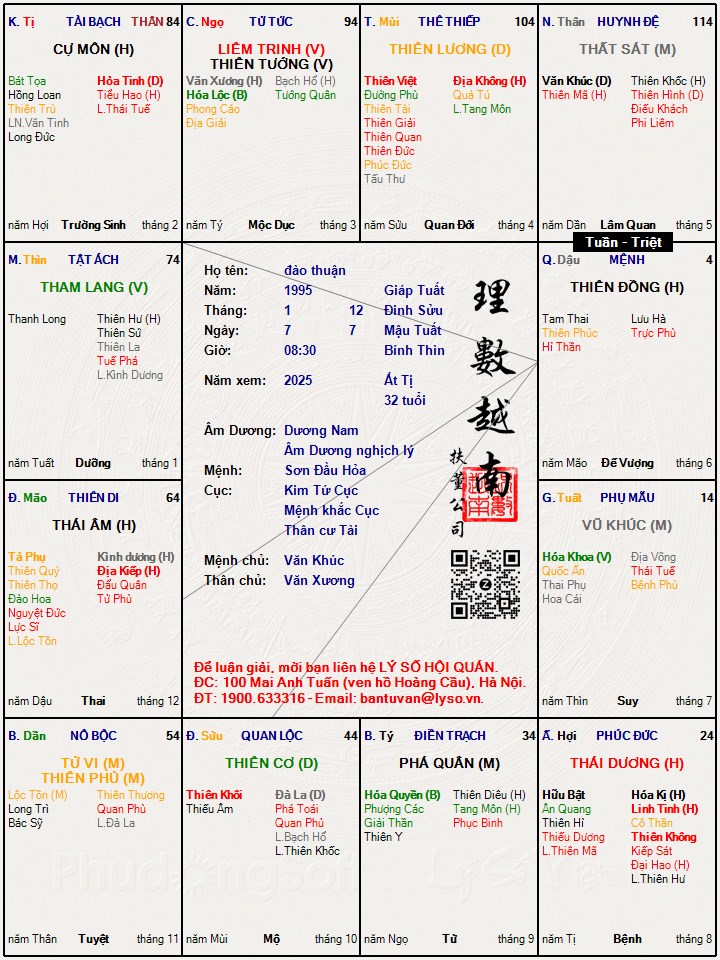 K. Tị TÀI BẠCH THÂN 84
CỰ MÔN (H)
Bát Tọa
Hồng Loan
Thiên Trù
LN.Văn Tinh
Long Đức
Hỏa Tinh (D)
Tiểu Hao (H)
L.Thái Tuế
năm Hợi Trường Sinh tháng 2
C. Ngọ TỬ TỨC 94
LIÊM TRINH (V)
THIÊN TƯỚNG (V)
Văn Xương (H)
Hóa Lộc (B)
Phong Cáo
Địa Giải
Bạch Hổ (H)
Tướng Quân
năm Tý Mộc Dục tháng 3
T. Mùi THÊ THIẾP 104
THIÊN LƯƠNG (D)
Thiên Việt
Đường Phù
Thiên Tài
Thiên Giải
Thiên Quan
Thiên Đức
Phúc Đức
Tấu Thư
Địa Không (H)
Quả Tú
L.Tang Môn
năm Sửu Quan Đới tháng 4
N. Thân HUYNH ĐỆ 114
THẤT SÁT (M)
Văn Khúc (D)
Thiên Mã (H)
Thiên Khốc (H)
Thiên Hình (D)
Điếu Khách
Phi Liêm
năm Dần Lâm Quan tháng 5
Tuần - Triệt
M. Thìn TẬT ÁCH 74
THAM LANG (V)
Thanh Long
Thiên Hư (H)
Thiên Sứ
Thiên La
Tuế Phá
L.Kình Dương
năm Tuất Dưỡng tháng 1
Họ tên: đào thuận
Năm: 1995 Giáp Tuất
Tháng: 1 12 Đinh Sửu
Ngày: 7 7 Mậu Tuất
Giờ: 08:30 Bính Thìn
Năm xem: 2025 Ất Tị
32 tuổi
Âm Dương: Dương Nam
Âm Dương nghịch lý
Mệnh: Sơn Đầu Hỏa
Cục: Kim Tứ Cục
Mệnh khắc Cục
Thân cư Tài
Mệnh chủ: Văn Khúc
Thân chủ: Văn Xương
理數越南
扶董公司
Để luận giải, mời bạn liên hệ LÝ SỐ HỘI QUÁN.
ĐC: 100 Mai Anh Tuấn (ven hồ Hoàng Cầu), Hà Nội.
ĐT: 1900.633316 - Email: bantuvan@lyso.vn.
Q. Dậu MỆNH 4
THIÊN ĐỒNG (H)
Tam Thai
Thiên Phúc
Hỉ Thần
Lưu Hà
Trực Phù
năm Mão Đế Vượng tháng 6
Đ. Mão THIÊN DI 64
THÁI ÂM (H)
Tả Phụ
Thiên Quý
Thiên Thọ
Đào Hoa
Nguyệt Đức
Lực Sĩ
L.Lộc Tồn
Kình dương (H)
Địa Kiếp (H)
Đẩu Quân
Tử Phù
năm Dậu Thai tháng 12
G. Tuất PHỤ MẪU 14
VŨ KHÚC (M)
Hóa Khoa (V)
Quốc Ấn
Thai Phụ
Hoa Cái
Địa Võng
Thái Tuế
Bệnh Phù
năm Thìn Suy tháng 7
B. Dần NÔ BỘC 54
TỬ VI (M)
THIÊN PHỦ (M)
Lộc Tồn (M)
Long Trì
Bác Sỹ
Thiên Thương
Quan Phù
L.Đà La
năm Thân Tuyệt tháng 11
Đ. Sửu QUAN LỘC 44
THIÊN CƠ (D)
Thiên Khôi
Thiếu Âm
Đà La (D)
Phá Toái
Quan Phủ
L.Bạch Hổ
L.Thiên Khốc
năm Mùi Mộ tháng 10
B. Tý ĐIỀN TRẠCH 34
PHÁ QUÂN (M)
Hóa Quyền (B)
Phượng Các
Giải Thần
Thiên Y
Thiên Diêu (H)
Tang Môn (H)
Phục Binh
năm Ngọ Tử tháng 9
Ấ. Hợi PHÚC ĐỨC 24
THÁI DƯƠNG (H)
Hữu Bật
Ân Quang
Thiên Hỉ
Thiếu Dương
L.Thiên Mã
Hóa Kị (H)
Linh Tinh (H)
Cô Thần
Thiên Không
Kiếp Sát
Đại Hao (H)
L.Thiên Hư
năm Tị Bệnh tháng 8